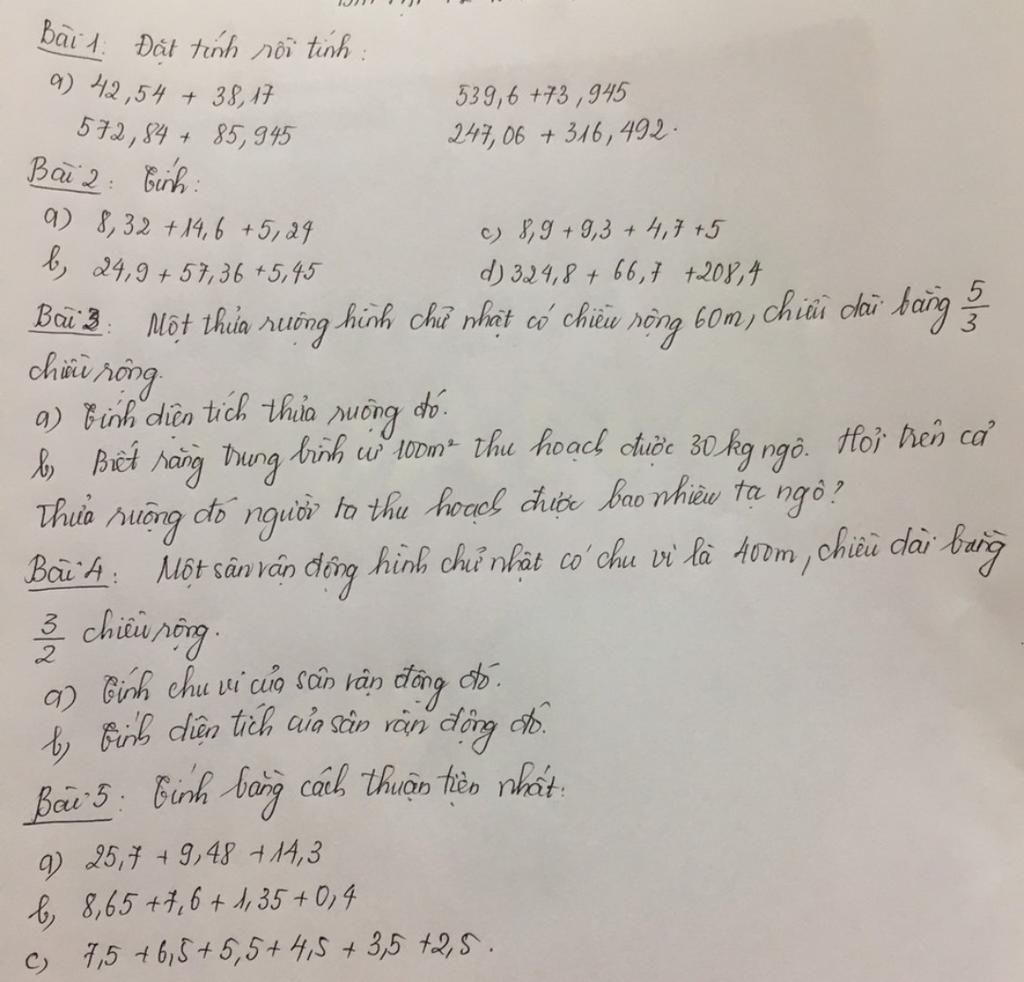 Bài 1: Đặt tính rồi tính:
a) 42,54 + 38,17 539,6 + 73,945
572,84 + 85,945 247,06 + 316,492.
Bài 2: Tính:
a) 8,32 + 14,6 + 5,24 c) 8,9 + 9,3 + 4,7 + 5
b) 24,9 + 57,36 + 5,45 d) 324,8 + 66,7 + 208,4
Bài 3: Một thửa ruộng hình chữ nhật có chiều rộng 60m, chiều dài bằng 5/3
chiều rộng.
a) Tính diện tích thửa ruộng đó.
b) Biết rằng trung bình cứ 100m² thu hoạch được 30 kg ngô. Hỏi trên cả
thửa ruộng đó người ta thu hoạch được bao nhiêu tạ ngô?
Bài 4: Một sân vận động hình chữ nhật có chu vi là 400m, chiều dài bằng
3/2 chiều rộng.
a) Tính chu vi của sân vận động đó.
b) Tính diện tích của sân vận động đó.
Bài 5: Tính bằng cách thuận tiện nhất:
a) 25,7 + 9,48 + 14,3
b) 8,65 + 7,6 + 1,35 + 0,4
c) 7,5 + 6,5 + 5,5 + 4,5 + 3,5 + 2,5.